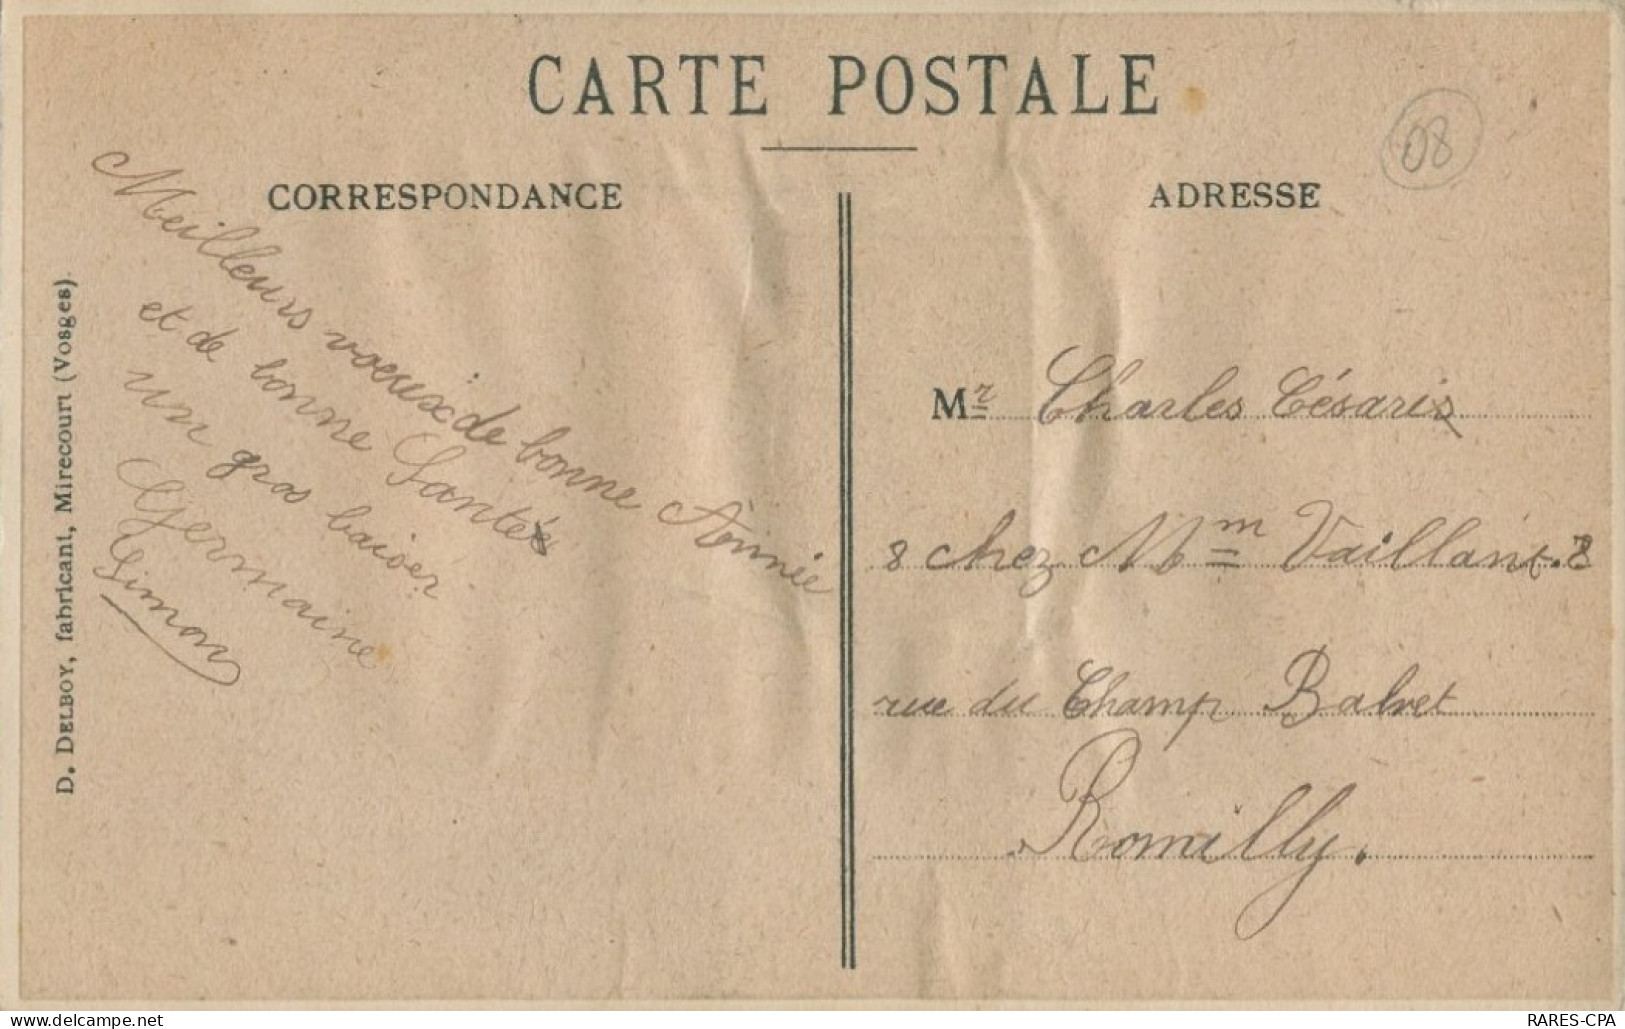 CARTE POSTALE
08
CORRESPONDANCE
ADRESSE
Meilleurs voeux de bonne Année
et de bonne Santé
un gros baiser
Germaine
Simon
Mr Charles Césari
8 chez Mme Vaillant. 8
rue du Champ Balvet
Romilly.
D. DELBOY, fabricant, Mirecourt (Vosges)
delcampe.net
RARES-CPA